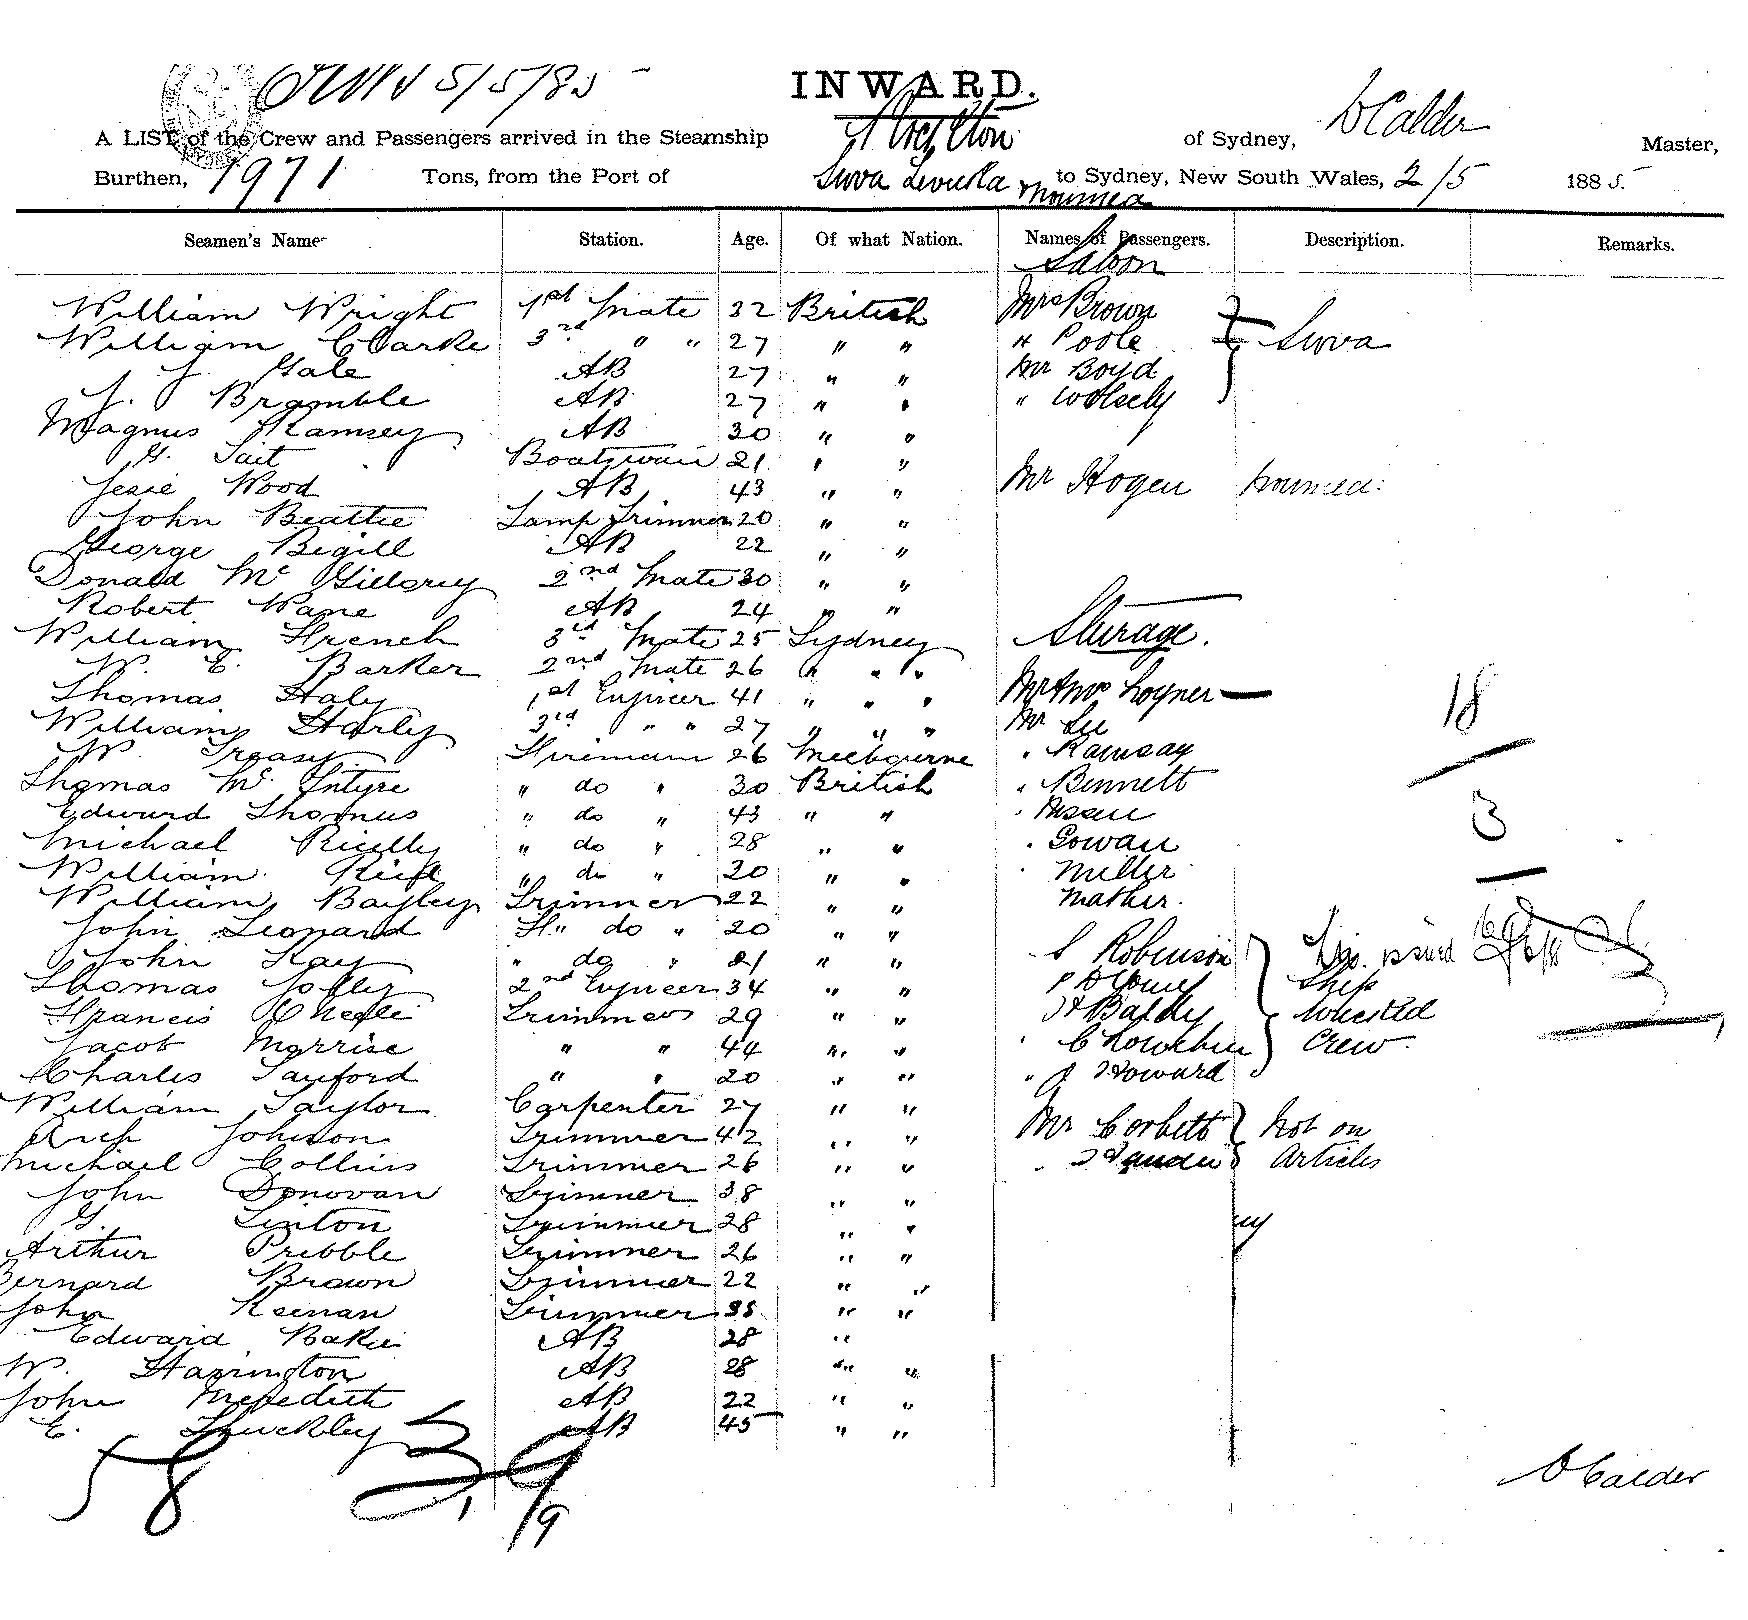 5/5/85
INWARD.
A LIST of the Crew and Passengers arrived in the Steamship of Sydney, D Calder Master,
Burthen, 1971 Tons, from the Port of Suva Levuka & Noumea to Sydney, New South Wales, 2/5 1885.
Seamen's Name Station. Age. Of what Nation. Names of Passengers. Description. Remarks.
Saloon
William Wright 1st Mate 32 British Mrs Brown
William Clarke 3rd " " 27 " " " Poole Suva
J. Gale AB 27 " " Mr Boyd
J. Bramble AB 27 " " " Wolsely
Magnus Ramsey AB 30 " "
G. Tait Boatswain 21 " "
Jessie Wood AB 43 " " Mr Hogen Noumea
John Beattie Lamp Trimmer 20 " "
George Bigill AB 22 " "
Donald Mc Gillorey 2nd Mate 30 " "
Robert Wane AB 24 " "
William French 3rd Mate 25 Sydney Sturage.
W. E. Barker 2nd Mate 26 " " "
Thomas Haly 1st Engineer 41 " " " Mr & Mrs Loyner 18
William Harley 3rd " " 27 " " " Mr Lee
W. Treasy Fireman 26 Melbourne " Ramsay
Thomas Mc Intyre " do " 30 British " Bennett
Edward Thomas " do " 43 " " 3
Michael Rielly " do " 28 " " " Gowan
William " do " 30 " " " Miller
William Bayley Trimmer 22 " " Mather.
John Leonard F" do " 20 " "
John Kay " do " 21 " " S Robinson issued
Thomas Jolley 2nd Engineer 34 " " Ship
Francis Trimmers 29 " " Wrecked
Jacob Morrise " " 44 " " Crew
Charles Tayford " " 20 " " " Howard
William Taylor Carpenter 27 " "
Arch Johnson Trimmer 42 " " Mr Corbett Not on
Michael Collins Trimmer 26 " " Articles
John Donovan Trimmer 38 " "
G. Linton Trimmer 28 " "
Arthur Pribble Trimmer 26 " "
Bernard Brown Trimmer 22 " "
John Keenan Trimmer 35 " "
Edward Baker AB 28 "
W. Harrington AB 28 " "
John Meredith AB 22 " "
E. AB 45 " "
58 39
19
D Calder